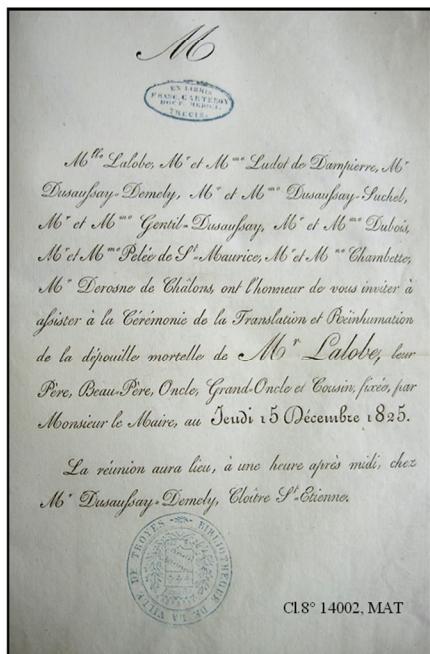 M
EX LIBRIS
FRANC. CARTERON
DOCT. MEDICI.
TRECIS.
M^lle Lalobe, M^r et M^me Ludot de Dampierre, M^r
Dusaußay-Demely, M^r et M^me Dusaußay-Suchel,
M^r et M^me Gentil-Dusaußay, M^r et M^me Dubois,
M^r et M^me Pelée de S^t-Maurice, M^r et M^me Chambette,
M^r Derosne de Châlons, ont l'honneur de vous inviter à
aßister à la Cérémonie de la Translation et Réinhumation
de la dépouille mortelle de M^r Lalobe, leur
Père, Beau-Père, Oncle, Grand-Oncle et Cousin, fixée, par
Monsieur le Maire, au Jeudi 15 Décembre 1825.
La réunion aura lieu, à une heure après midi, chez
M^r Dusaußay-Demely, Cloître S^t-Etienne.
BIBLIOTHEQUE DE LA VILLE DE TROYES
Cl.8° 14002, MAT